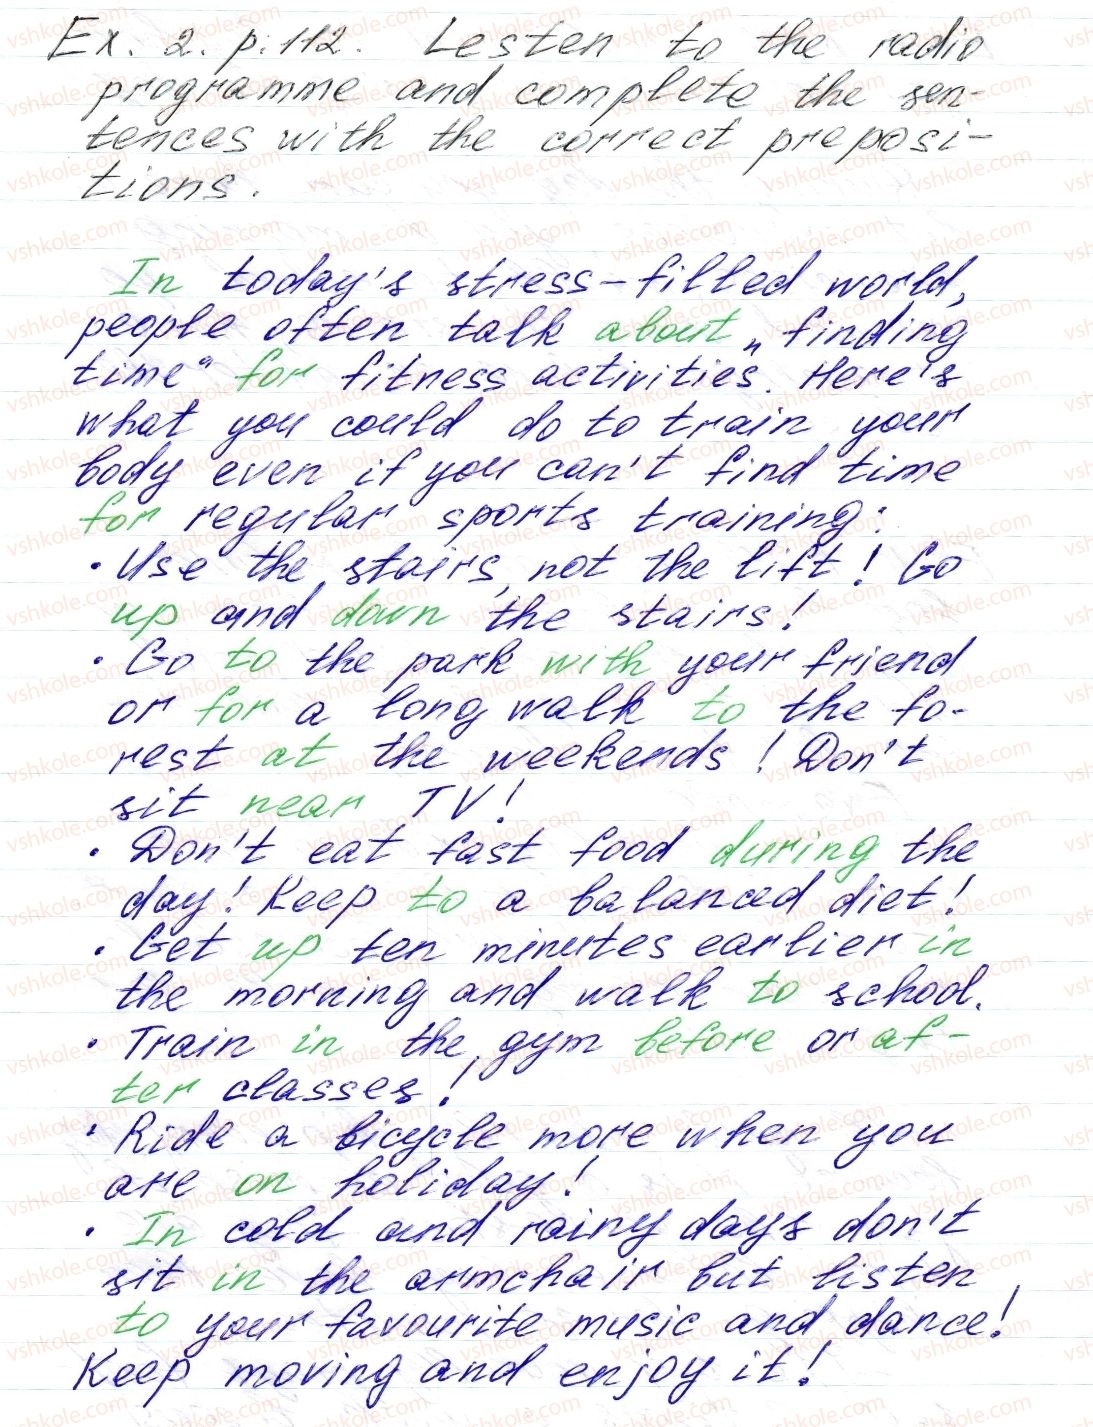 Ex. 2. p. 112. Lesten to the radio
programme and complete the sen-
tences with the correct preposi-
tions.
In today's stress-filled world,
people often talk about „finding
time“ for fitness activities. Here's
what you could do to train your
body even if you can't find time
for regular sports training:
• Use the stairs, not the lift! Go
up and down the stairs!
• Go to the park with your friend
or for a long walk to the fo-
rest at the weekends! Don't
sit near TV!
• Don't eat fast food during the
day! Keep to a balanced diet!
• Get up ten minutes earlier in
the morning and walk to school.
• Train in the gym before or af-
ter classes!
• Ride a bicycle more when you
are on holiday!
• In cold and rainy days don't
sit in the armchair but listen
to your favourite music and dance!
Keep moving and enjoy it!
vshkole.com